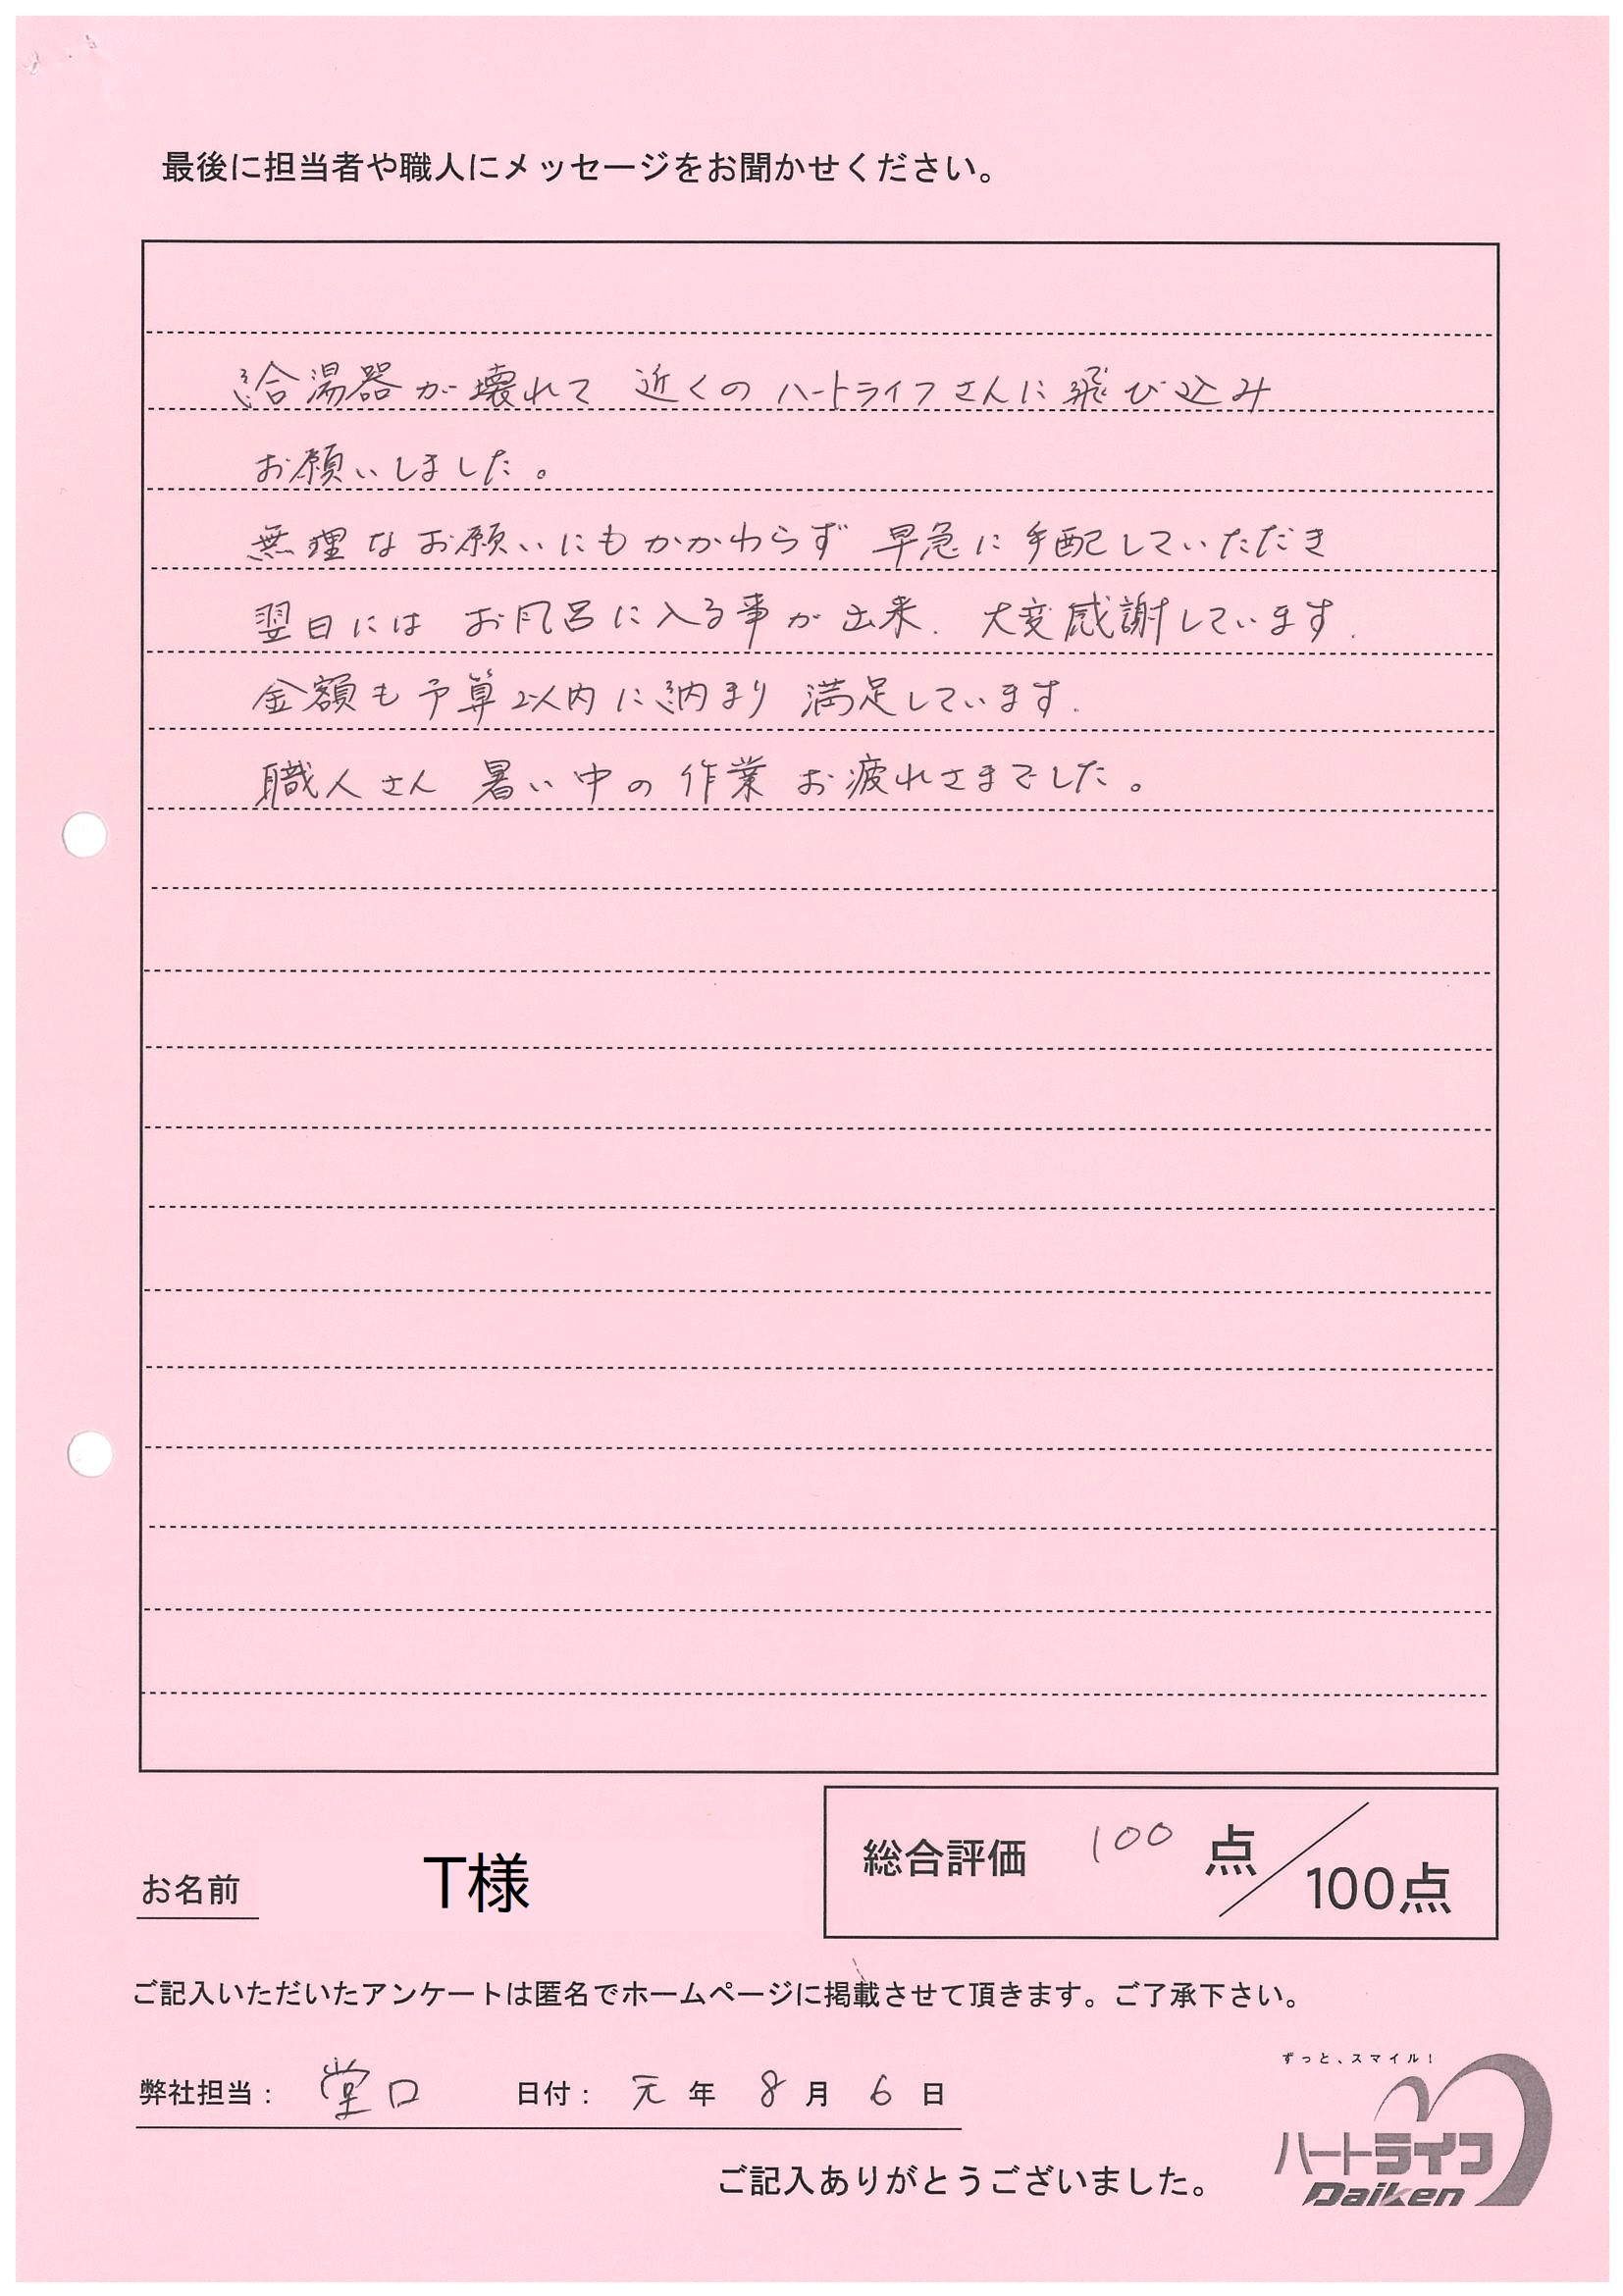 最後に担当者や職人にメッセージをお聞かせください。
給湯器が壊れて 近くの ハートライフさんに飛び込み
お願いしました。
無理なお願いにもかかわらず 早急に手配していただき
翌日には お風呂に入る事が出来、大変感謝しています.
金額も予算以内に納まり 満足しています.
職人さん 暑い中の作業 お疲れさまでした。
総合評価 100 点/100点
お名前 T様
ご記入いただいたアンケートは匿名でホームページに掲載させて頂きます。ご了承下さい。
弊社担当: 堂口 日付: 元 年 8 月 6 日
ずっと、スマイル!
ハートライフ
Daiken
ご記入ありがとうございました。